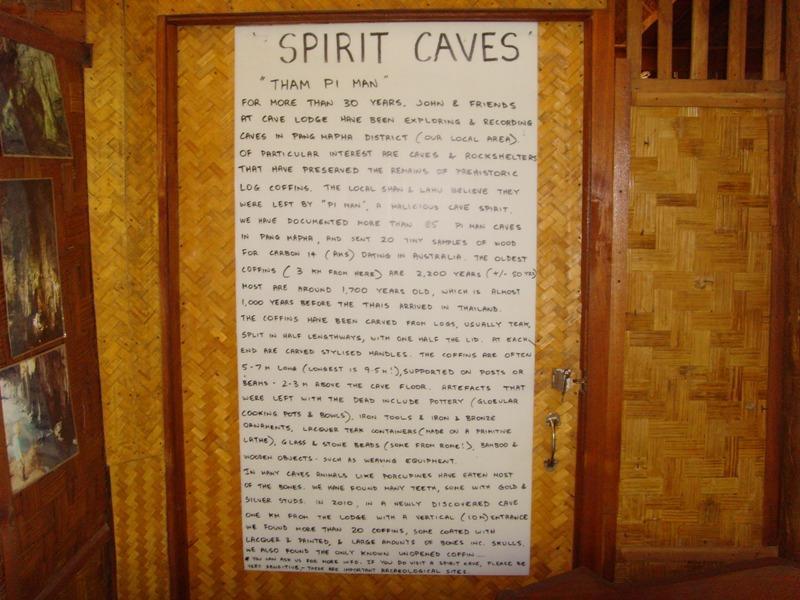 'SPIRIT CAVES'
"THAM PI MAN"
FOR MORE THAN 30 YEARS, JOHN & FRIENDS
AT CAVE LODGE HAVE BEEN EXPLORING & RECORDING
CAVES IN PANG MAPHA DISTRICT (OUR LOCAL AREA).
OF PARTICULAR INTEREST ARE CAVES & ROCKSHELTERS
THAT HAVE PRESERVED THE REMAINS OF PREHISTORIC
LOG COFFINS. THE LOCAL SHAN & LAHU BELIEVE THEY
WERE LEFT BY "PI MAN", A MALICIOUS CAVE SPIRIT.
WE HAVE DOCUMENTED MORE THAN 85 PI MAN CAVES
IN PANG MAPHA, AND SENT 20 TINY SAMPLES OF WOOD
FOR CARBON 14 (AMS) DATING IN AUSTRALIA. THE OLDEST
COFFINS (3 KM FROM HERE) ARE 2,200 YEARS (+/- 50 YRS)
MOST ARE AROUND 1,700 YEARS OLD, WHICH IS ALMOST
1,000 YEARS BEFORE THE THAIS ARRIVED IN THAILAND.
THE COFFINS HAVE BEEN CARVED FROM LOGS, USUALLY TEAK,
SPLIT IN HALF LENGTHWAYS, WITH ONE HALF THE LID. AT EACH
END ARE CARVED STYLISED HANDLES. THE COFFINS ARE OFTEN
5-7 M LONG (LONGEST IS 9.5M!), SUPPORTED ON POSTS OR
BEAMS - 2-3 M ABOVE THE CAVE FLOOR. ARTEFACTS THAT
WERE LEFT WITH THE DEAD INCLUDE POTTERY (GLOBULAR
COOKING POTS & BOWLS), IRON TOOLS & IRON & BRONZE
ORNAMENTS, LACQUER TEAK CONTAINERS (MADE ON A PRIMITIVE
LATHE), GLASS & STONE BEADS (SOME FROM ROME!), BAMBOO &
WOODEN OBJECTS - SUCH AS WEAVING EQUIPMENT.
IN MANY CAVES ANIMALS LIKE PORCUPINES HAVE EATEN MOST
OF THE BONES. WE HAVE FOUND MANY TEETH, SOME WITH GOLD &
SILVER STUDS. IN 2010, IN A NEWLY DISCOVERED CAVE
ONE KM FROM THE LODGE WITH A VERTICAL (10M) ENTRANCE
WE FOUND MORE THAN 20 COFFINS, SOME COATED WITH
LACQUER & PAINTED, & LARGE AMOUNTS OF BONES INC. SKULLS.
WE ALSO FOUND THE ONLY KNOWN UNOPENED COFFIN....
* YOU CAN ASK US FOR MORE INFO. IF YOU DO VISIT A SPIRIT CAVE, PLEASE BE
VERY SENSITIVE - THESE ARE IMPORTANT ARCHAEOLOGICAL SITES.